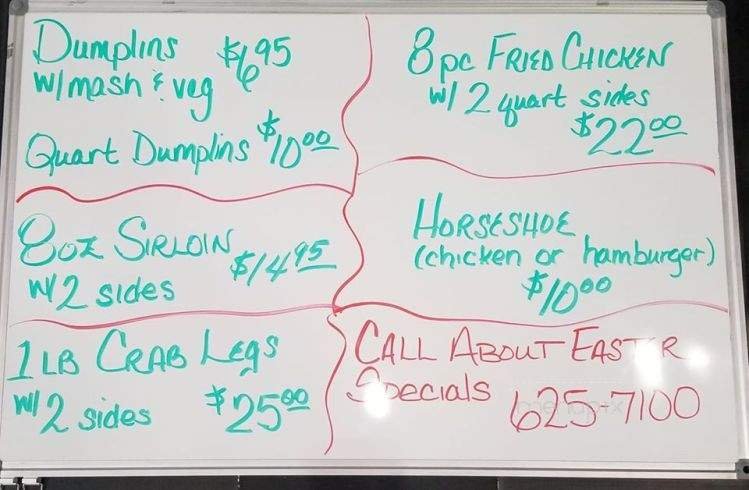 Dumplins $6.95
w/ mash & veg
Quart Dumplins $10.00
8oz Sirloin
w/ 2 sides $14.95
1 LB Crab Legs
w/ 2 sides $25.00
8 pc Fried Chicken
w/ 2 quart sides
$22.00
Horseshoe
(chicken or hamburger)
$10.00
Call About East r
Specials 625-7100